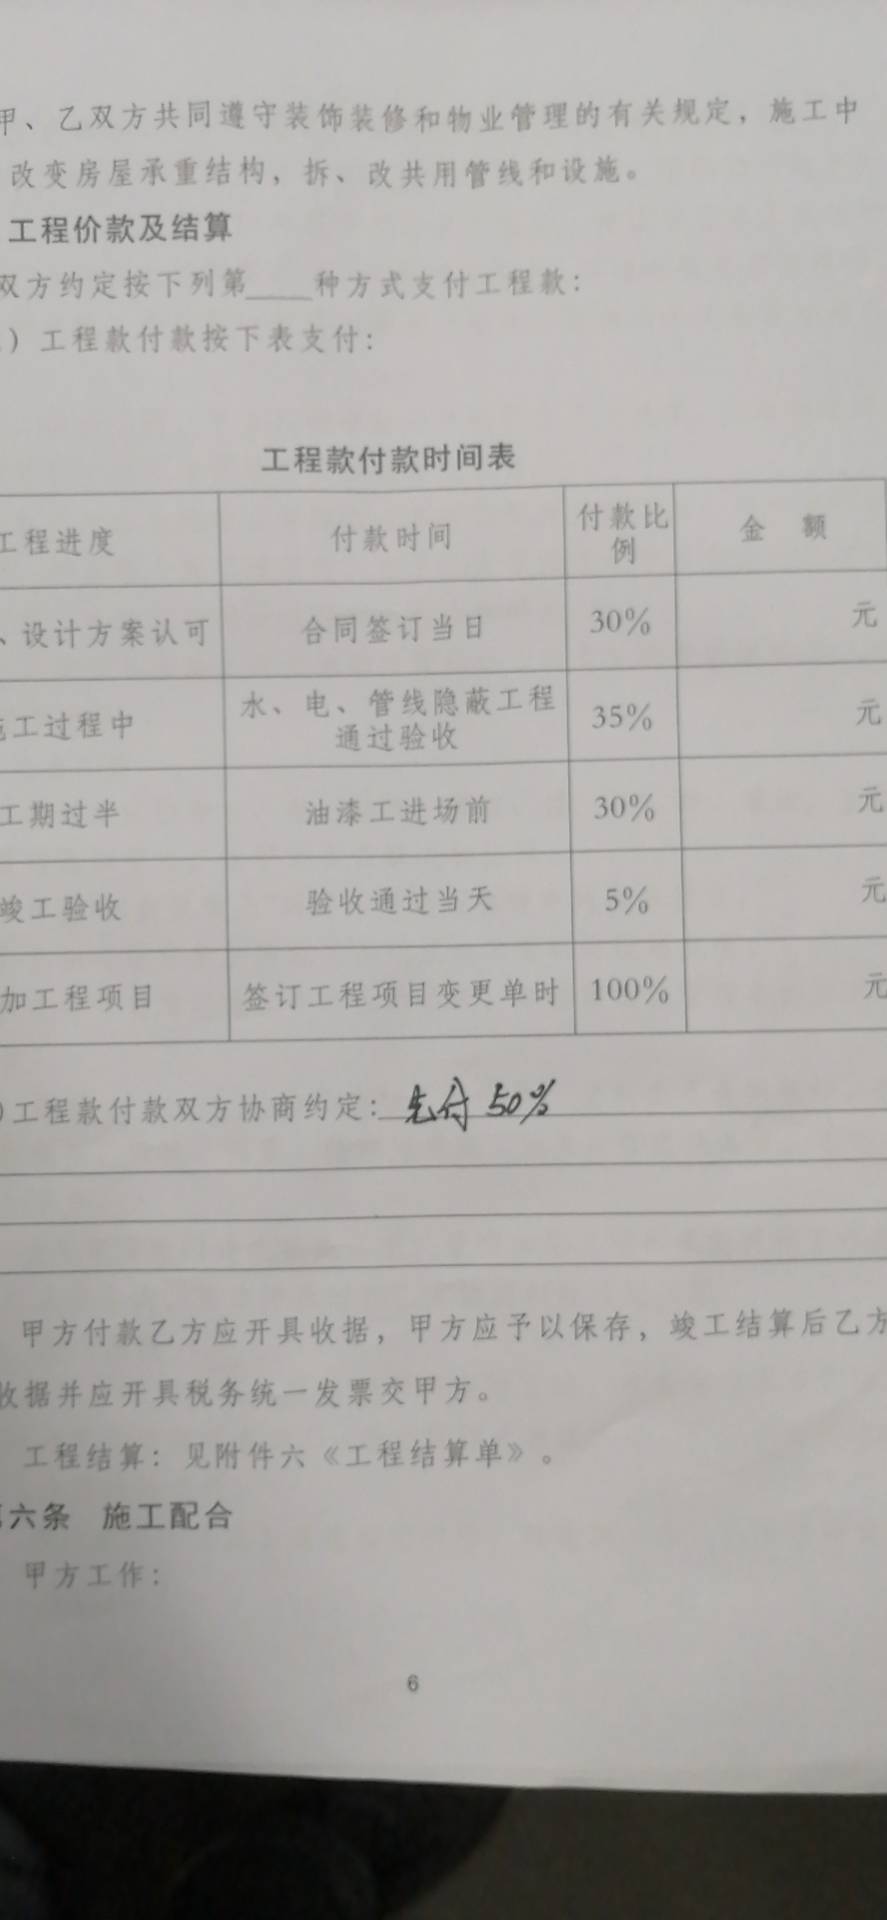 甲、乙双方共同遵守装饰装修和物业管理的有关规定，施工中
改变房屋承重结构，拆、改共用管线和设施。
工程价款及结算
双方约定按下列第____种方式支付工程款：
）工程款付款按下表支付：
工程款付款时间表
工程进度 付款时间 付款比例 金 额
、设计方案认可 合同签订当日 30% 元
施工过程中 水、电、管线隐蔽工程通过验收 35% 元
工期过半 油漆工进场前 30% 元
竣工验收 验收通过当天 5% 元
加工程项目 签订工程项目变更单时 100% 元
）工程款付款双方协商约定：先付50%
甲方付款乙方应开具收据，甲方应予以保存，竣工结算后乙方
收据并应开具税务统一发票交甲方。
工程结算：见附件六《工程结算单》。
第六条 施工配合
甲方工作：
6